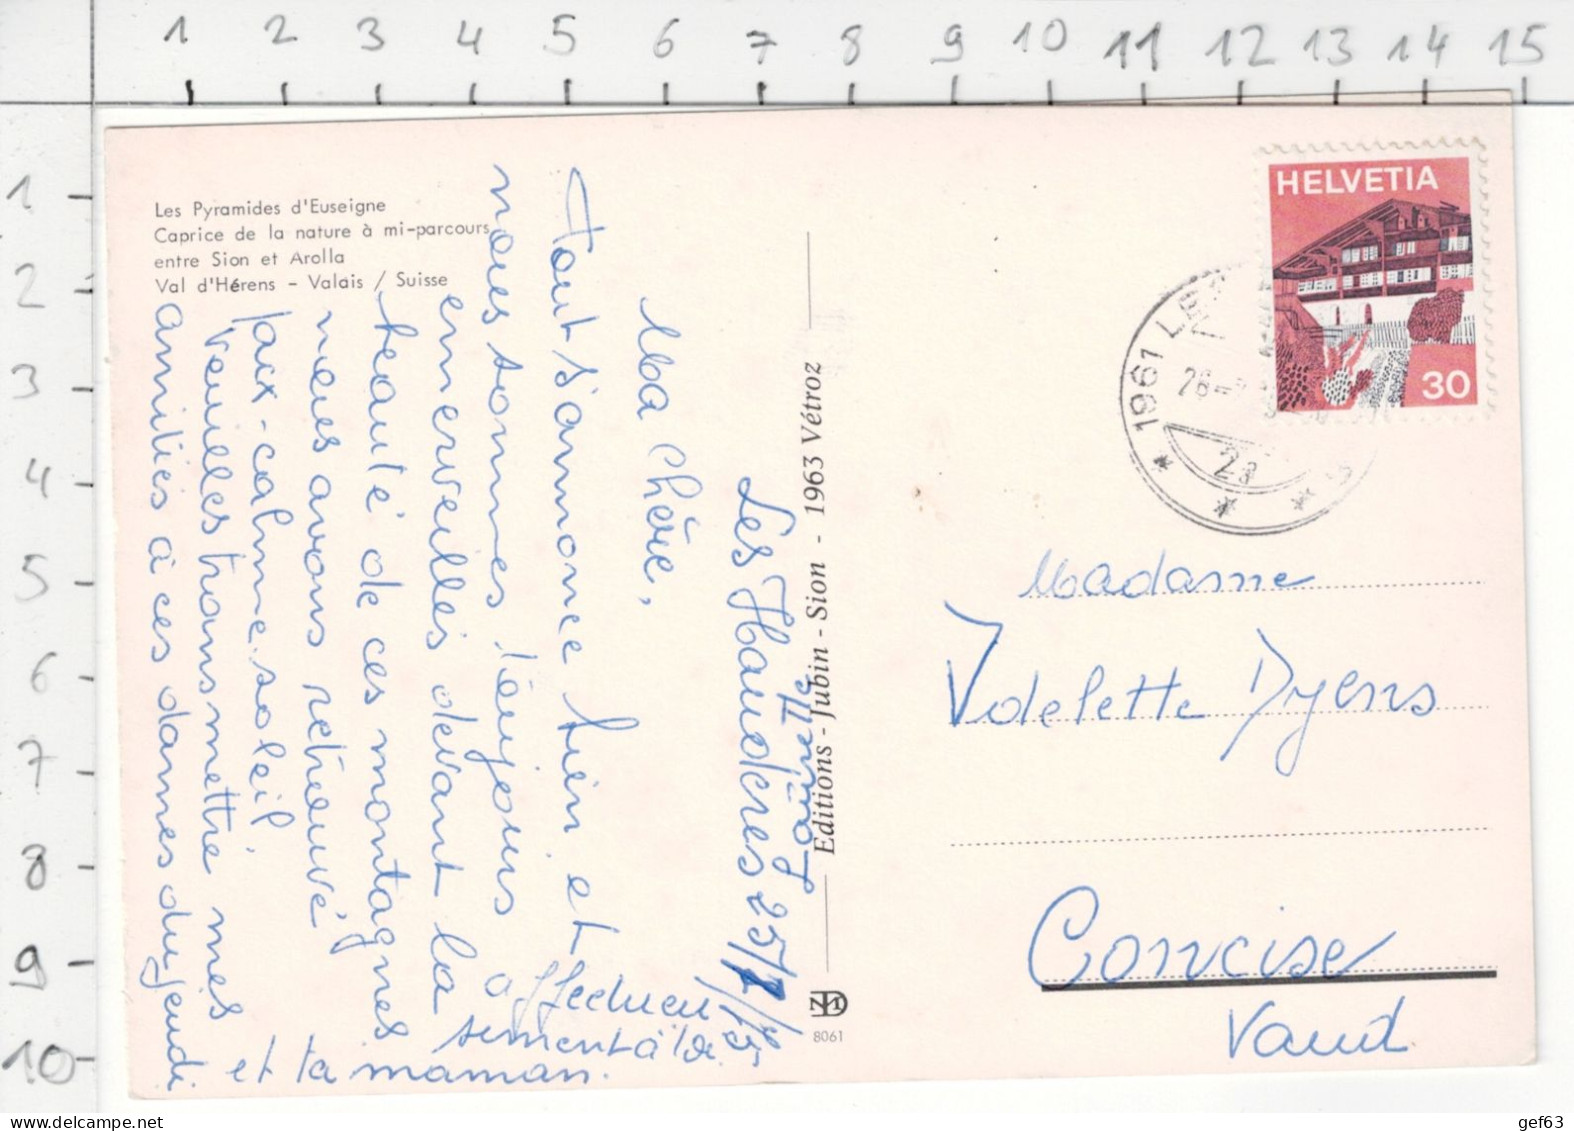 1 2 3 4 5 6 7 8 9 10 11 12 13 14 15
1
2
3
4
5
6
7
8
9
10
Les Pyramides d'Euseigne
Caprice de la nature à mi-parcours
entre Sion et Arolla
Val d'Hérens - Valais / Suisse
Les Haudères 25/7/75
Ma chère,
Tout s'annonce bien et
nous sommes toujours
émerveillés devant la
beauté de ces montagnes
nous avons retrouvé
paix - calme. soleil.
Veuilles transmettre mes
amitiés à ces dames du jeudi
et ta maman.
Editions - Jubin - Sion - 1963 Vétroz
8061
HELVETIA
30
1961
28
Madame
Idelette Dyens
Concise
Vaud
gef63